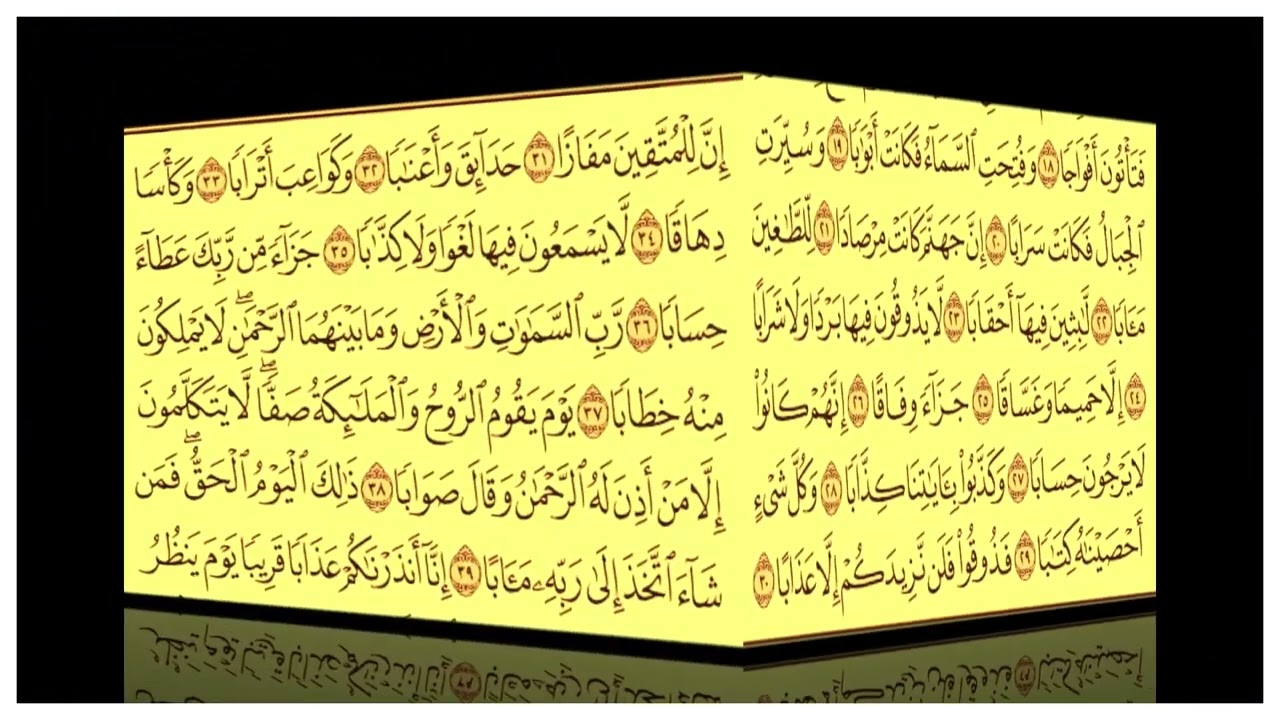 فَتَأْتُونَ أَفْوَاجًا ١٨ وَفُتِحَتِ ٱلسَّمَآءُ فَكَانَتْ أَبْوَٰبًا ١٩ وَسُيِّرَتِ
ٱلْجِبَالُ فَكَانَتْ سَرَابًا ٢٠ إِنَّ جَهَنَّمَ كَانَتْ مِرْصَادًا ٢١ لِّلطَّٰغِينَ
مَـَٔابًا ٢٢ لَّٰبِثِينَ فِيهَآ أَحْقَابًا ٢٣ لَّا يَذُوقُونَ فِيهَا بَرْدًا وَلَا شَرَابًا
٢٤ إِلَّا حَمِيمًا وَغَسَّاقًا ٢٥ جَزَآءً وِفَاقًا ٢٦ إِنَّهُمْ كَانُوا۟
لَا يَرْجُونَ حِسَابًا ٢٧ وَكَذَّبُوا۟ بِـَٔايَٰتِنَا كِذَّابًا ٢٨ وَكُلَّ شَىْءٍ
أَحْصَيْنَٰهُ كِتَٰبًا ٢٩ فَذُوقُوا۟ فَلَن نَّزِيدَكُمْ إِلَّا عَذَابًا ٣٠
إِنَّ لِلْمُتَّقِينَ مَفَازًا ٣١ حَدَآئِقَ وَأَعْنَٰبًا ٣٢ وَكَوَاعِبَ أَتْرَابًا ٣٣ وَكَأْسًا
دِهَاقًا ٣٤ لَّا يَسْمَعُونَ فِيهَا لَغْوًا وَلَا كِذَّٰبًا ٣٥ جَزَآءً مِّن رَّبِّكَ عَطَآءً
حِسَابًا ٣٦ رَّبِّ ٱلسَّمَٰوَٰتِ وَٱلْأَرْضِ وَمَا بَيْنَهُمَا ٱلرَّحْمَٰنِ ۖ لَا يَمْلِكُونَ
مِنْهُ خِطَابًا ٣٧ يَوْمَ يَقُومُ ٱلرُّوحُ وَٱلْمَلَٰٓئِكَةُ صَفًّا ۖ لَّا يَتَكَلَّمُونَ
إِلَّا مَنْ أَذِنَ لَهُ ٱلرَّحْمَٰنُ وَقَالَ صَوَابًا ٣٨ ذَٰلِكَ ٱلْيَوْمُ ٱلْحَقُّ ۖ فَمَن
شَآءَ ٱتَّخَذَ إِلَىٰ رَبِّهِۦ مَـَٔابًا ٣٩ إِنَّآ أَنذَرْنَٰكُمْ عَذَابًا قَرِيبًا يَوْمَ يَنظُرُ